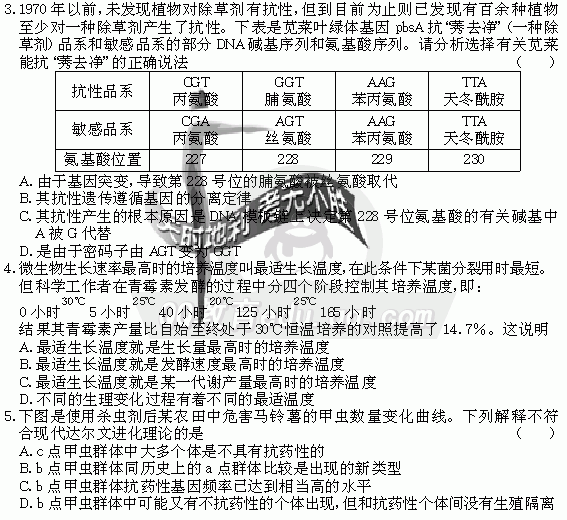 3.1970年以前,未发现植物对除草剂有抗性,但到目前为止则已发现有百余种植物
至少对一种除草剂产生了抗性。下表是苋菜叶绿体基因pbsA抗"莠去净"(一种除
草剂)品系和敏感品系的部分DNA碱基序列和氨基酸序列。请分析选择有关苋菜
能抗"莠去净"的正确说法 ( )
抗性品系 CGT 丙氨酸 GGT 脯氨酸 AAG 苯丙氨酸 TTA 天冬酰胺
敏感品系 CGA 丙氨酸 AGT 丝氨酸 AAG 苯丙氨酸 TTA 天冬酰胺
氨基酸位置 227 228 229 230
A.由于基因突变,导致第228号位的脯氨酸被丝氨酸取代
B.其抗性遗传遵循基因的分离定律
C.其抗性产生的根本原因是DNA模板链上决定第228号位氨基酸的有关碱基中
A被G代替
D.是由于密码子由AGT变为GGT
4.微生物生长速率最高时的培养温度叫最适生长温度,在此条件下某菌分裂用时最短。
但科学工作者在青霉素发酵的过程中分四个阶段控制其培养温度,即:
0小时 30℃ 5小时 25℃ 40小时 20℃ 125小时 25℃ 165小时
结果其青霉素产量比自始至终处于30℃恒温培养的对照提高了14.7%。这说明
A.最适生长温度就是生长量最高时的培养温度
B.最适生长温度就是发酵速度最高时的培养温度
C.最适生长温度就是某一代谢产量最高时的培养温度
D.不同的生理变化过程有着不同的最适温度
5.下图是使用杀虫剂后某农田中危害马铃薯的甲虫数量变化曲线。下列解释不符
合现代达尔文进化理论的是 ( )
A.c点甲虫群体中大多个体是不具有抗药性的
B.b点甲虫群体同历史上的a点群体比较是出现的新类型
C.b点甲虫群体抗药性基因频率已达到相当高的水平
D.b点甲虫群体中可能又有不抗药性的个体出现,但和抗药性个体间没有生殖隔离